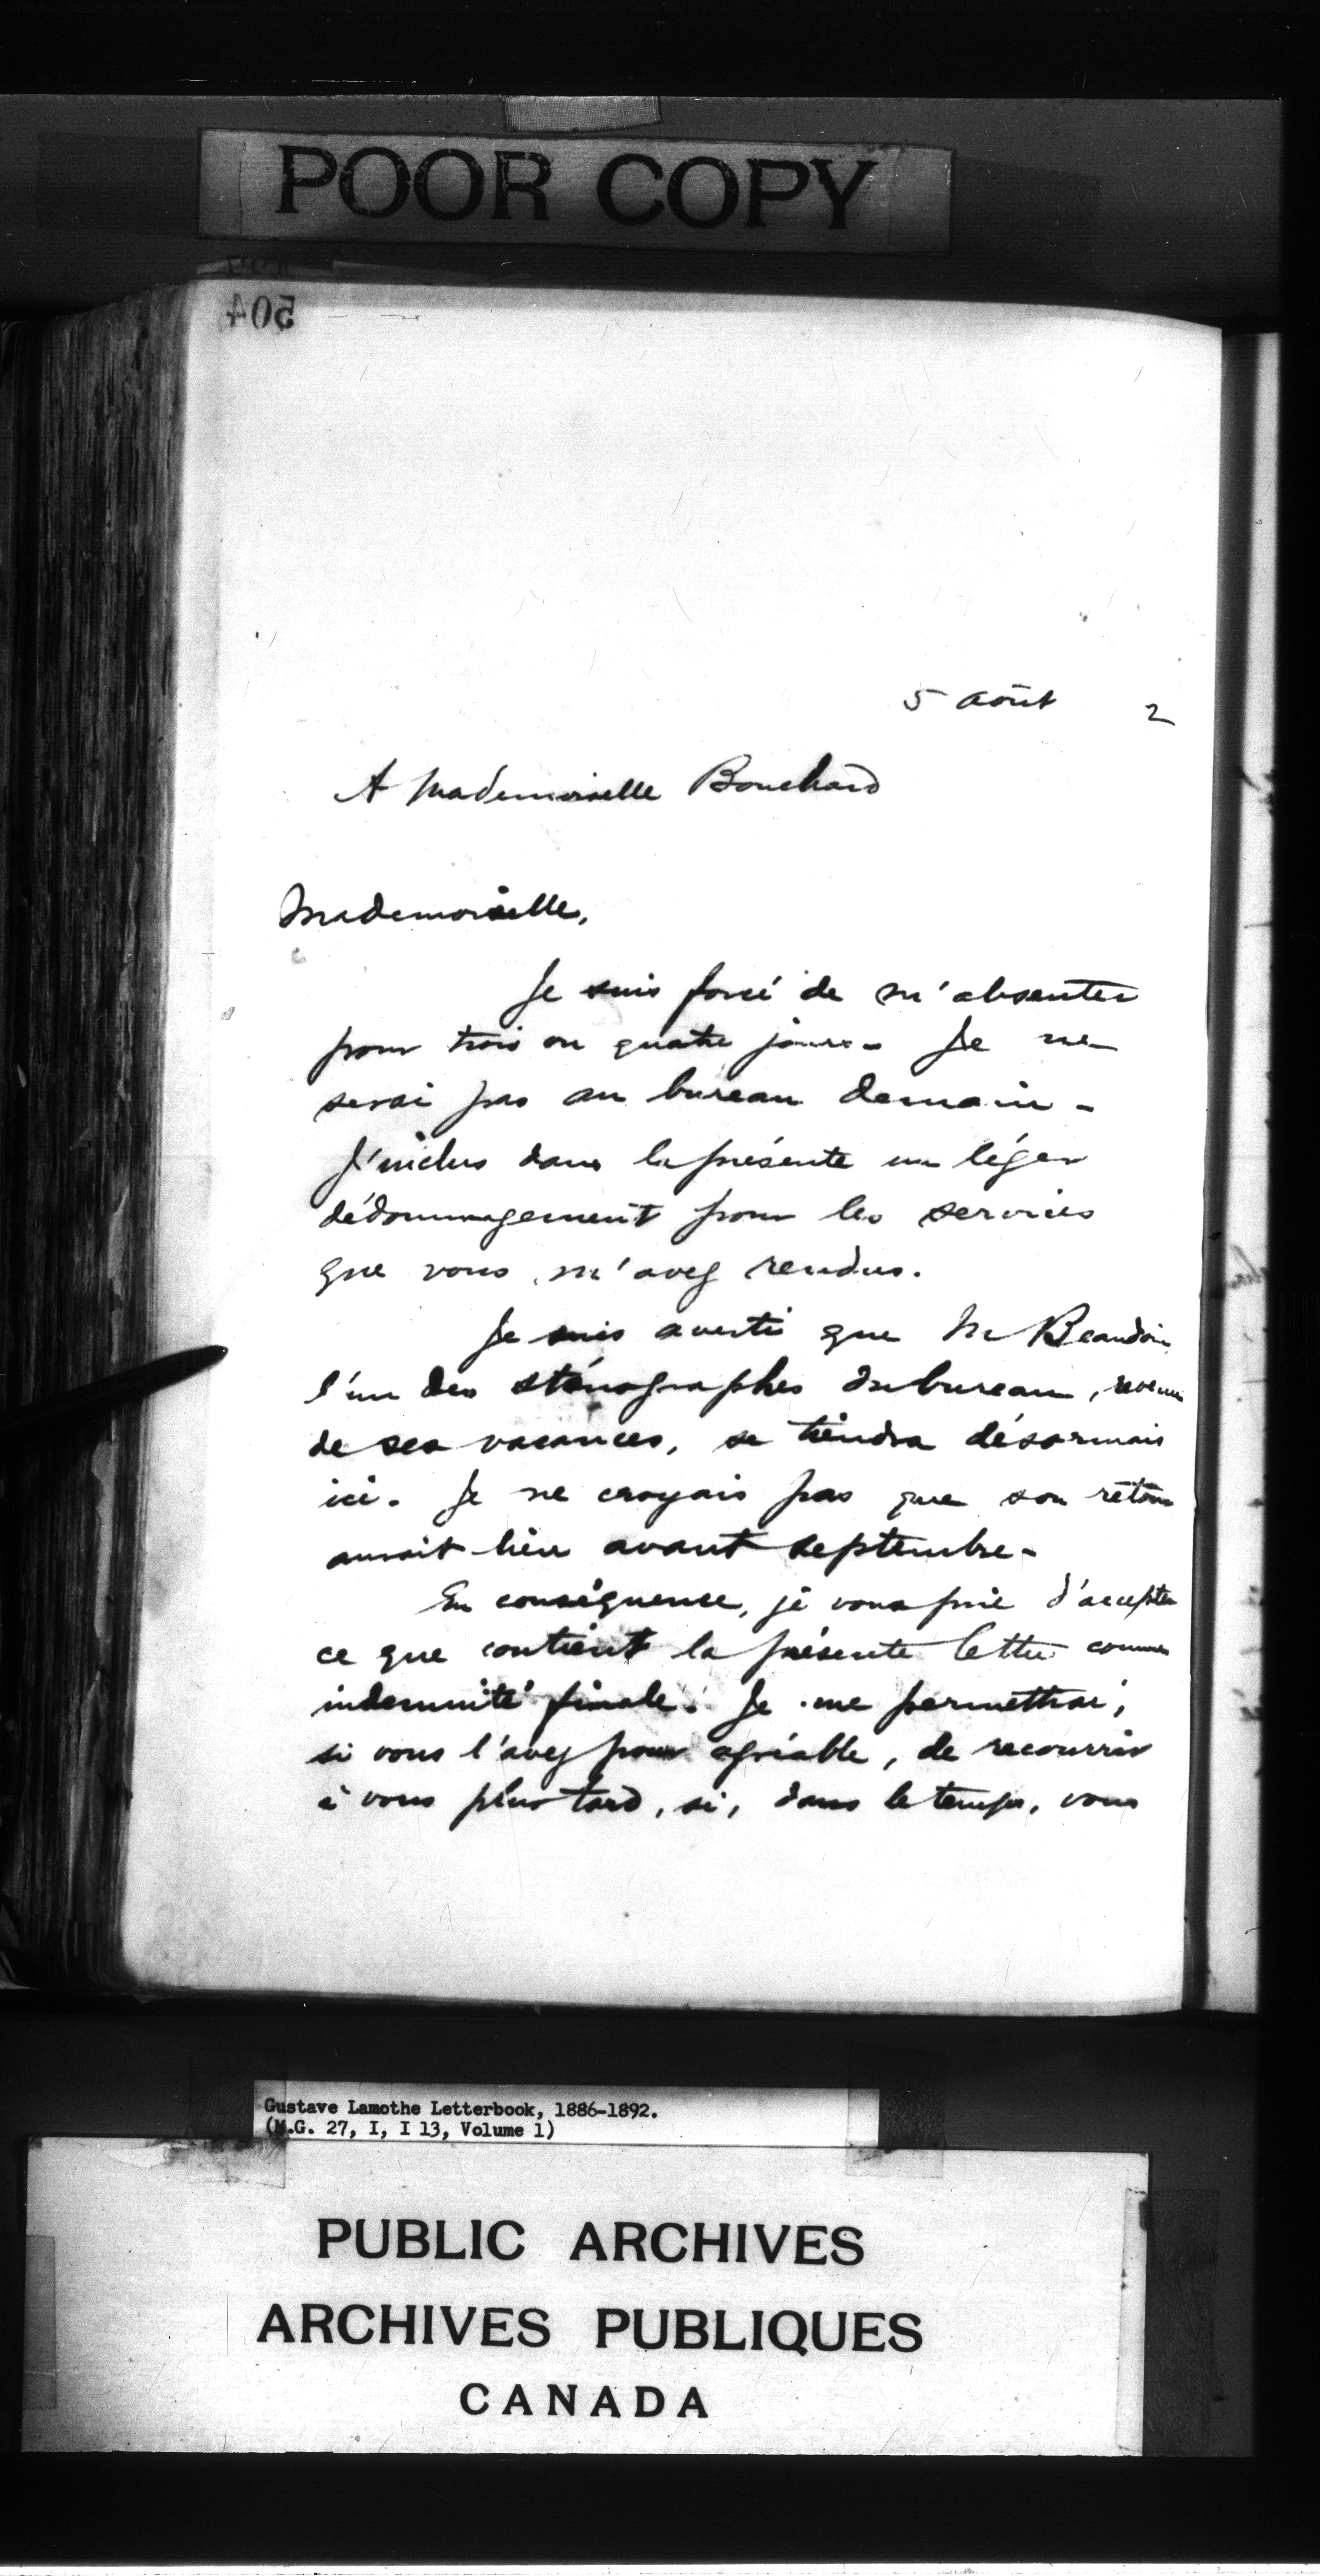 POOR COPY
504
5 Août 2
A Mademoiselle Bouchard
Mademoiselle,
Je suis forcé de m'absenter
pour trois ou quatre jours - Je ne
serai pas au bureau demain -
J'inclus dans la présente un léger
dédommagement pour les services
que vous m'avez rendus.
Je suis averti que Mr Beaudoin
l'un des sténographes du bureau, revenu
de ses vacances, se tiendra désormais
ici. Je ne croyais pas que son retour
aurait lieu avant septembre -
En conséquence, je vous prie d'accepter
ce que contient la présente lettre comme
indemnité finale. Je me permettrai,
si vous l'avez pour agréable, de recourrir
à vous plus tard, si, dans le temps, vous
Gustave Lamothe Letterbook, 1886-1892.
(M.G. 27, I, I 13, Volume 1)
PUBLIC ARCHIVES
ARCHIVES PUBLIQUES
CANADA